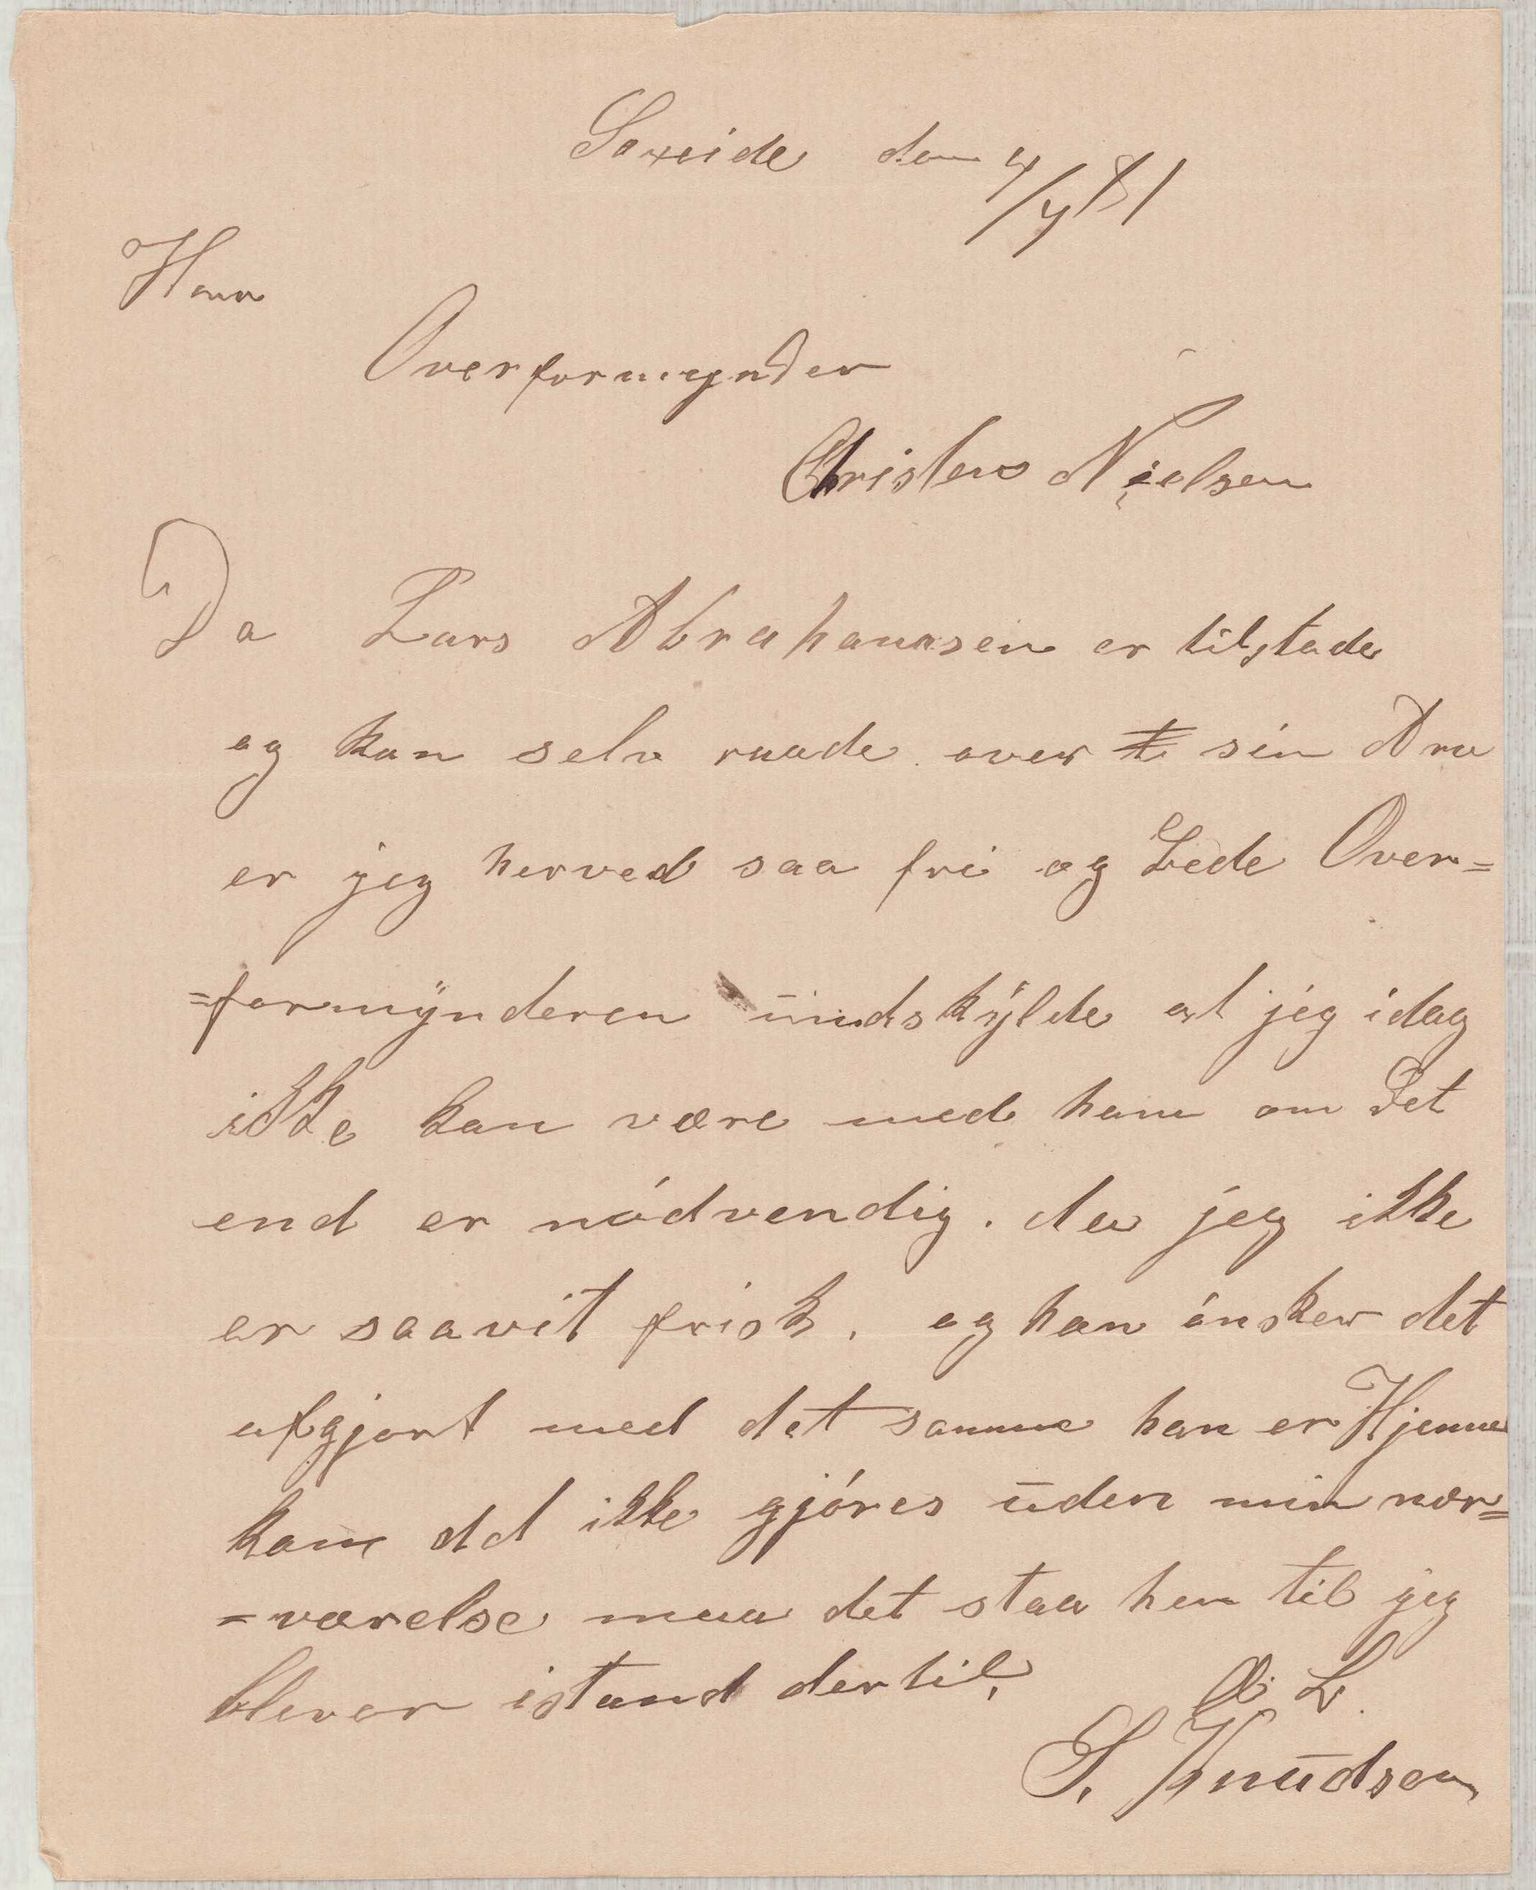 Saxeide den 4/4 81
Herr
Overformynder
Christen Nielsen
Da Lars Abrahamsen er tilstade
og kan selv raade over sin Arv
er jeg herved saa fri og bede Over=
=formynderen undskylde at jeg idag
ikke kan være med ham om det
end er nódvendig. da jeg ikke
er saavit frisk, og han ónsker det
afgjort med det samme han er Hjemme
kan det ikke gjóres uden min nær=
=værelse maa det staa hen til jeg
blever istand dertil.
S. Knudsen